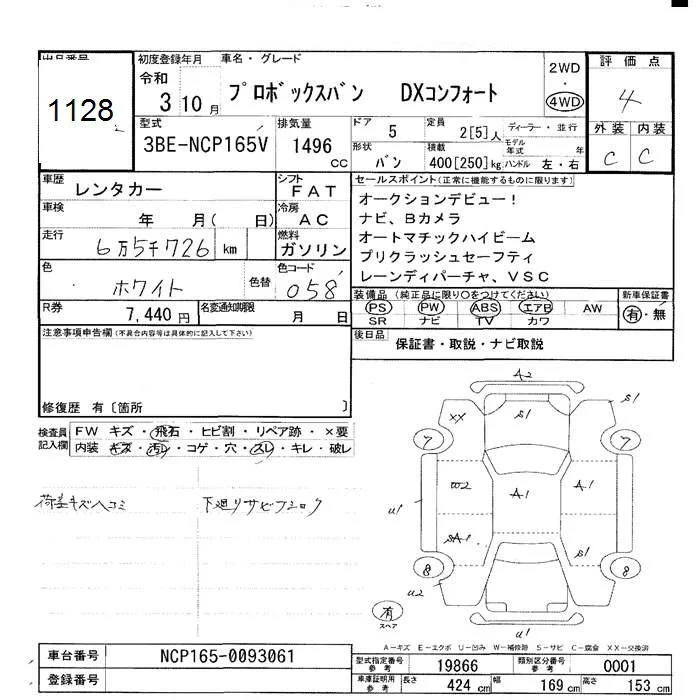 出品番号
1128
初度登録年月
令和
3 10 月
車名・グレード
プロボックスバン DXコンフォート
2WD
・
4WD
評価点
4
型式
3BE-NCP165V
排気量
1496
cc
ドア
5
定員
2[5] 人
ディーラー・並行
モデル年式 年
形状
バン
積載
400[250] kg
ハンドル 左・右
外装 内装
C C
車歴
レンタカー
シフト
FAT
車検
年 月( 日)
冷房
AC
走行
6万5千726 km
燃料
ガソリン
色
ホワイト
色替
色コード
058
R券
7,440 円
名変通知期限
月 日
セールスポイント(正常に機能するものに限ります)
オークションデビュー!
ナビ、Bカメラ
オートマチックハイビーム
プリクラッシュセーフティ
レーンディパーチャ、VSC
装備品(純正品に限り○をつけてください)
PS PW ABS エアB AW
SR ナビ TV カワ
新車保証書
有・無
後日品
保証書・取説・ナビ取説
注意事項申告欄(不具合内容等は具体的に記入して下さい)
修復歴 有〔箇所 〕
検査員記入欄
FW キズ・飛石・ヒビ割・リペア跡・×要
内装 キズ・汚レ・コゲ・穴・スレ・キレ・破レ
荷室キズヘコミ
下廻りサビフニロク
A2
S1
XX
S1
7
7
W2
A1
A1
U1
SA1
S1
8
8
U2
有
スペア
U1
A-キズ E-エクボ U-凹み W-補修跡 S-サビ C-腐食 XX-交換済
車台番号
NCP165-0093061
登録番号
型式指定番号
参考
19866
類別区分番号
参考
0001
車庫証明用
参考
長さ
424 cm
幅
169 cm
高さ
153 cm